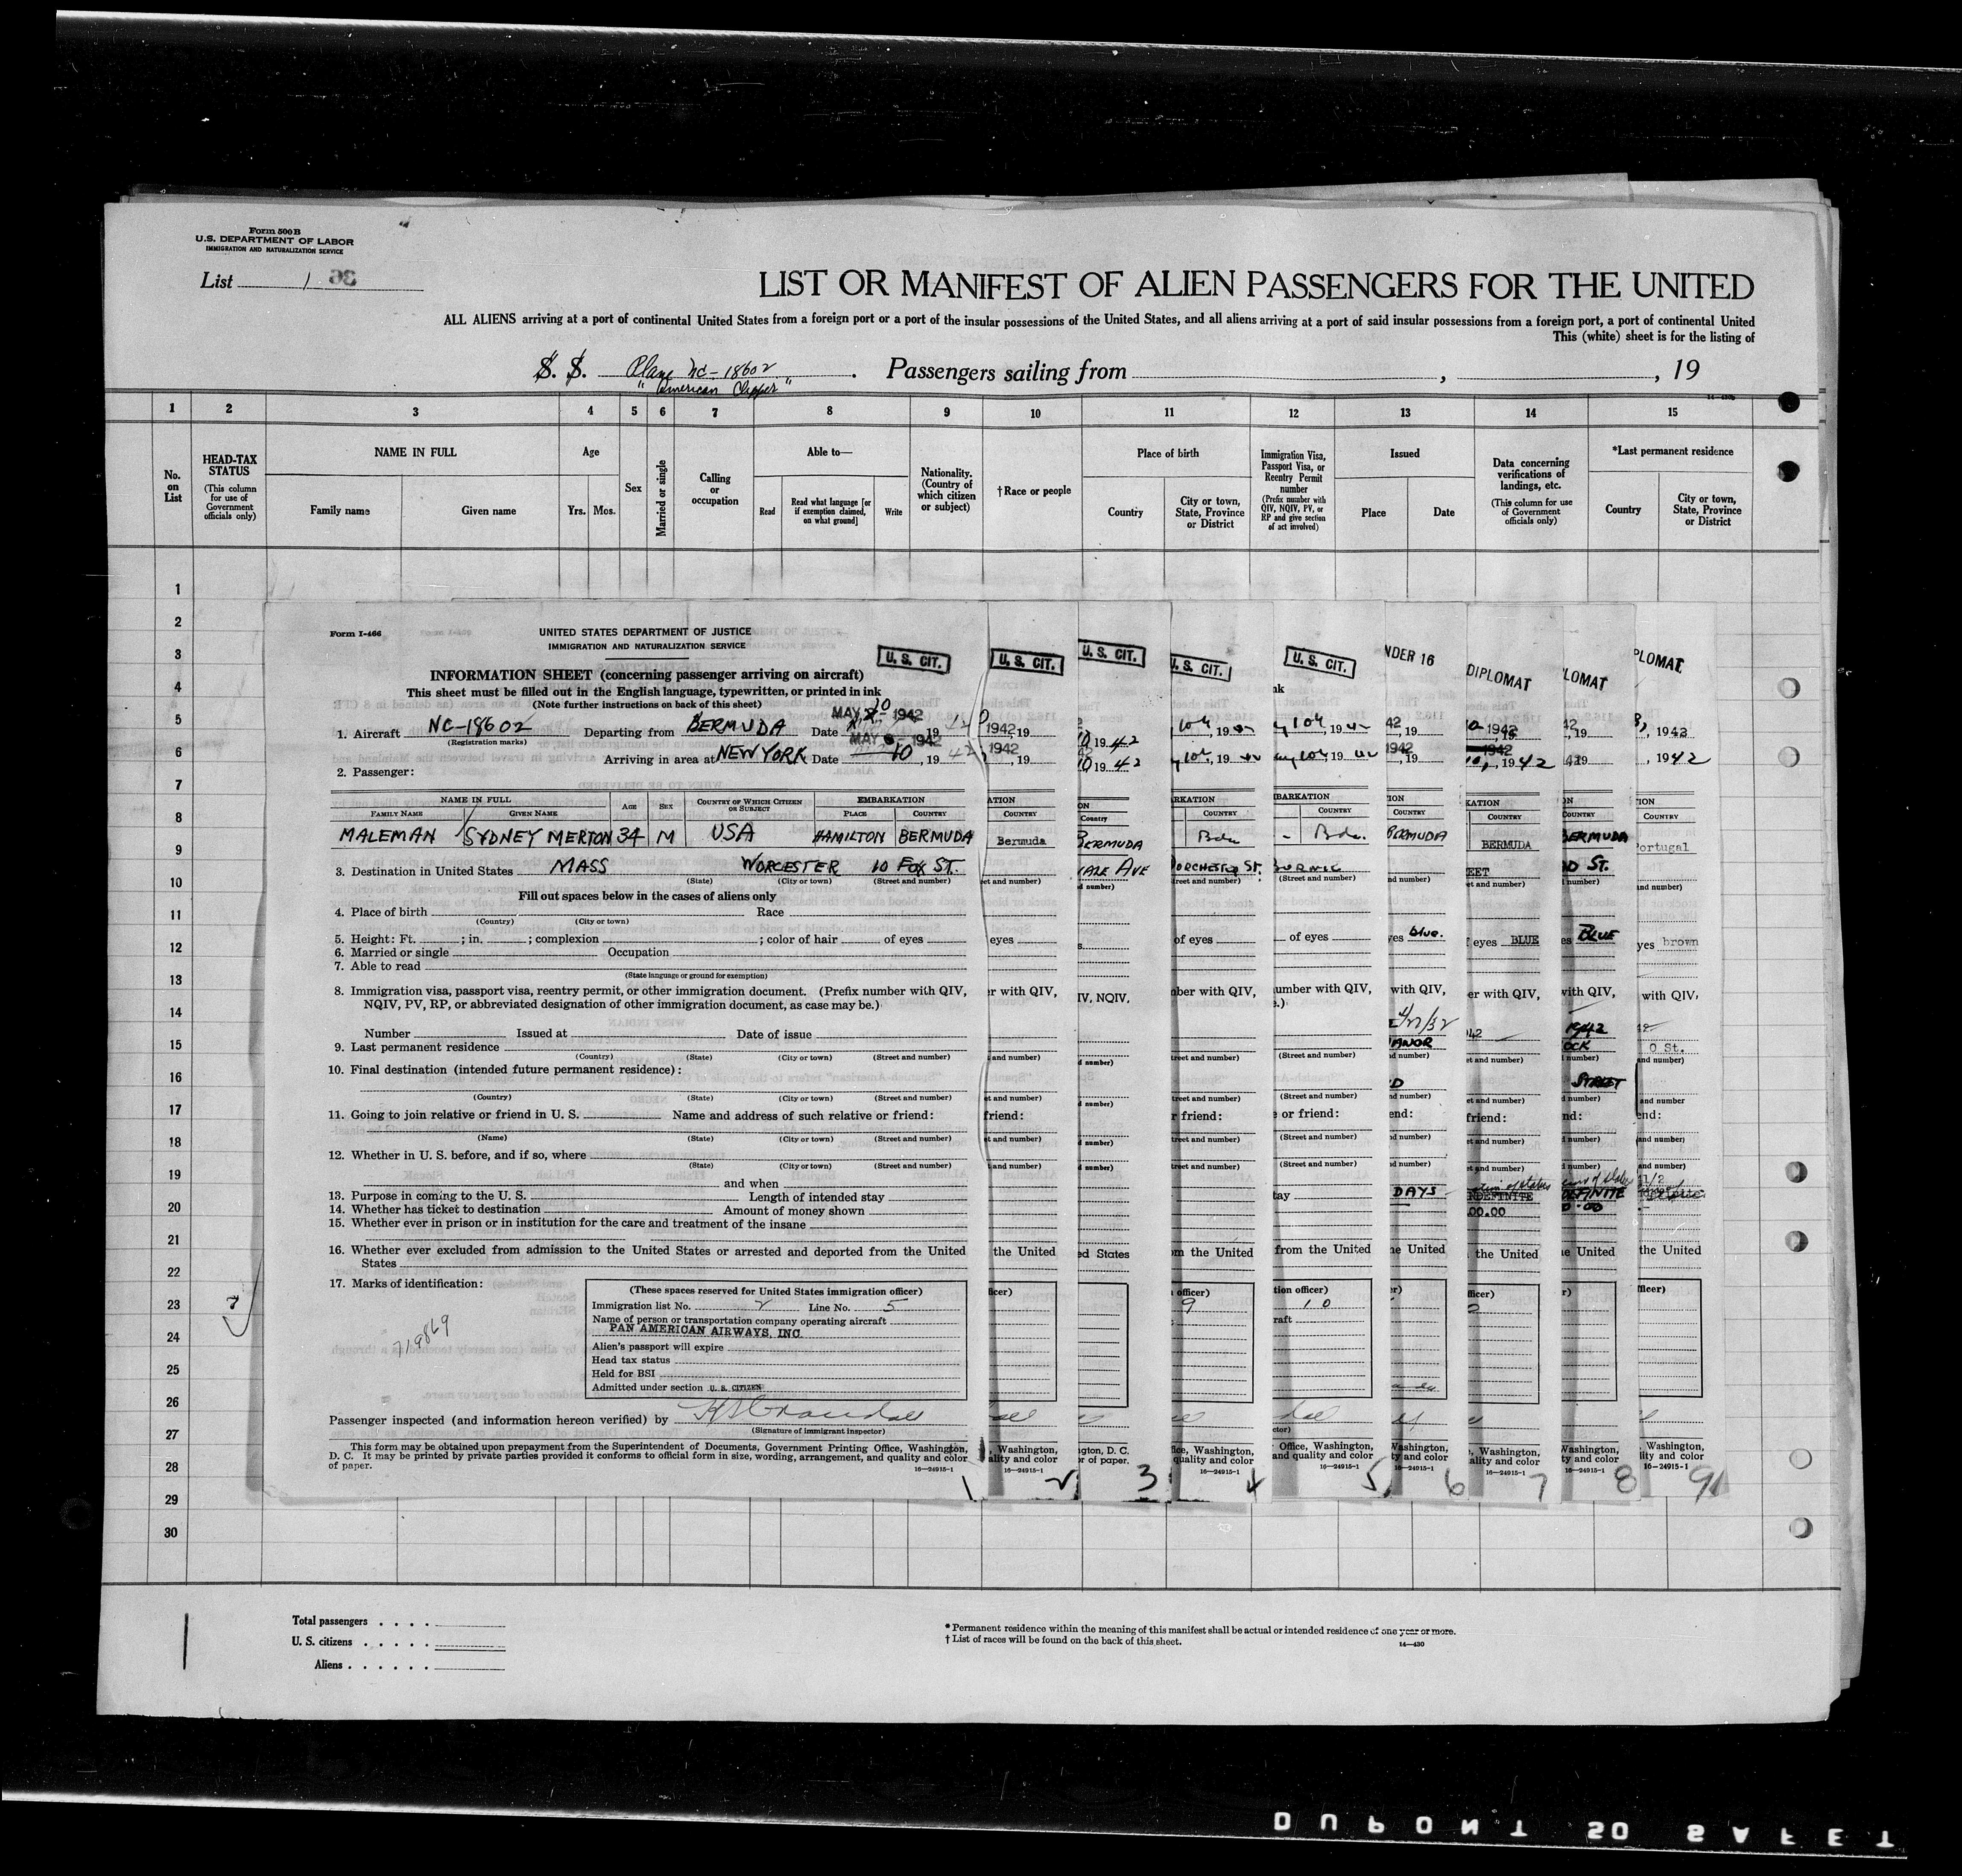 Form 500B
U.S. DEPARTMENT OF LABOR
IMMIGRATION AND NATURALIZATION SERVICE
List 1 36
LIST OR MANIFEST OF ALIEN PASSENGERS FOR THE UNITED
ALL ALIENS arriving at a port of continental United States from a foreign port or a port of the insular possessions of the United States, and all aliens arriving at a port of said insular possessions from a foreign port, a port of continental United
This (white) sheet is for the listing of
S. S. Plane NC-18602 . Passengers sailing from , , 19
"American Clipper"
1 2 3 4 5 6 7 8 9 10 11 12 13 14 15
No. on List
HEAD-TAX STATUS
(This column for use of Government officials only)
NAME IN FULL
Family name Given name
Age
Yrs. Mos.
Sex
Married or single
Calling or occupation
Able to—
Read
Read what language [or if exemption claimed, on what ground]
Write
Nationality. (Country of which citizen or subject)
†Race or people
Place of birth
Country
City or town, State, Province or District
Immigration Visa, Passport Visa, or Reentry Permit number
(Prefix number with QIV, NQIV, PV, or RP and give section of act involved)
Issued
Place Date
Data concerning verifications of landings, etc.
(This column for use of Government officials only)
*Last permanent residence
Country
City or town, State, Province or District
1
2
3
4
5
6
7
8
9
10
11
12
13
14
15
16
17
18
19
20
21
22
23
24
25
26
27
28
29
30
Form I-466
UNITED STATES DEPARTMENT OF JUSTICE
IMMIGRATION AND NATURALIZATION SERVICE
U. S. CIT.
INFORMATION SHEET (concerning passenger arriving on aircraft)
This sheet must be filled out in the English language, typewritten, or printed in ink
(Note further instructions on back of this sheet)
1. Aircraft NC-18602 Departing from BERMUDA Date MAY 10 1942, 19 42
(Registration marks)
Arriving in area at NEW YORK Date MAY 10 1942, 19 42
2. Passenger:
NAME IN FULL AGE SEX COUNTRY OF WHICH CITIZEN OR SUBJECT EMBARKATION
FAMILY NAME GIVEN NAME PLACE COUNTRY
MALEMAN SYDNEY MERTON 34 M USA HAMILTON BERMUDA
3. Destination in United States MASS WORCESTER 10 FOX ST.
(State) (City or town) (Street and number)
Fill out spaces below in the cases of aliens only
4. Place of birth Race
(Country) (City or town)
5. Height: Ft. ; in. ; complexion ; color of hair of eyes
6. Married or single Occupation
7. Able to read
(State language or ground for exemption)
8. Immigration visa, passport visa, reentry permit, or other immigration document. (Prefix number with QIV,
NQIV, PV, RP, or abbreviated designation of other immigration document, as case may be.)
Number Issued at Date of issue
9. Last permanent residence
(Country) (State) (City or town) (Street and number)
10. Final destination (intended future permanent residence):
(Country) (State) (City or town) (Street and number)
11. Going to join relative or friend in U. S. Name and address of such relative or friend:
(Name) (State) (City or town) (Street and number)
12. Whether in U. S. before, and if so, where
(State) (City or town) (Street and number)
and when
13. Purpose in coming to the U. S. Length of intended stay
14. Whether has ticket to destination Amount of money shown
15. Whether ever in prison or in institution for the care and treatment of the insane
16. Whether ever excluded from admission to the United States or arrested and deported from the United
States
17. Marks of identification:
719869
(These spaces reserved for United States immigration officer)
Immigration list No. 2 Line No. 5
Name of person or transportation company operating aircraft
PAN AMERICAN AIRWAYS, INC.
Alien's passport will expire
Head tax status
Held for BSI
Admitted under section U. S. CITIZEN
Passenger inspected (and information hereon verified) by
(Signature of immigrant inspector)
This form may be obtained upon prepayment from the Superintendent of Documents, Government Printing Office, Washington,
D. C. It may be printed by private parties provided it conforms to official form in size, wording, arrangement, and quality and color
of paper.
16—24915-1
1 2 3 4 5 6 7 8 9
U. S. CIT. U. S. CIT. U. S. CIT. U. S. CIT. NDER 16 DIPLOMAT LOMAT PLOMAT
Bermuda BERMUDA Bda Bda. BERMUDA BERMUDA BERMUDA Portugal
DALE AVE DORCHESTER ST.
blue. BLUE BLUE brown
4/27/32
MANOR
1942
OCK
O St.
STREET
DAYS INDEFINITE DEFINITE
00.00
9 10
Total passengers . . . .
U. S. citizens . . . . .
Aliens . . . . . .
* Permanent residence within the meaning of this manifest shall be actual or intended residence of one year or more.
† List of races will be found on the back of this sheet.
14—430
DUPONT SO SAFET